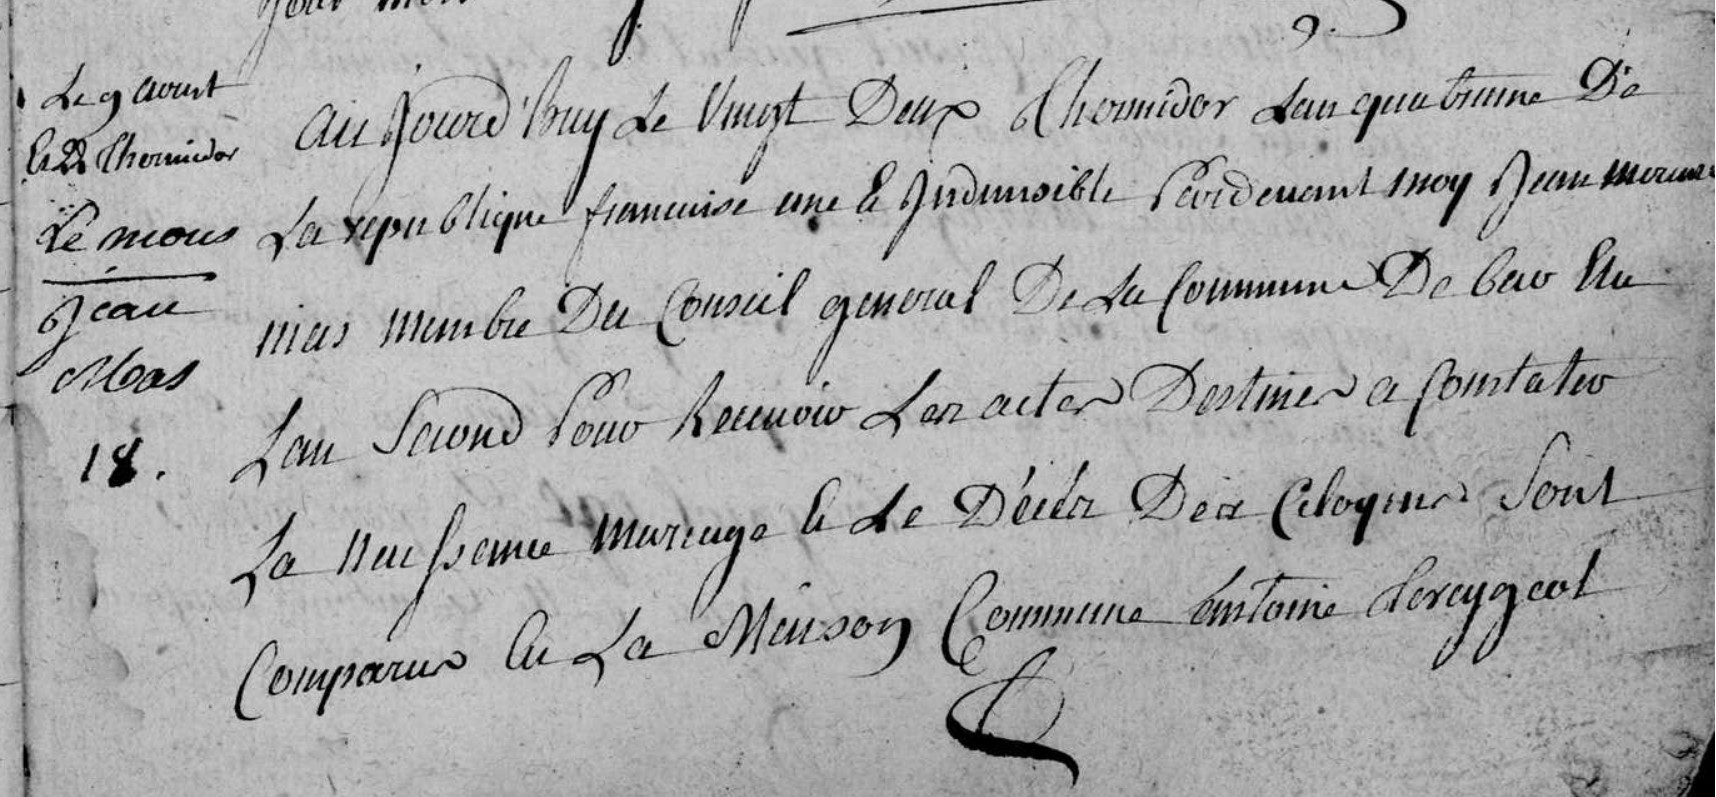 Le 9 aoust
le 22 thermidor
Lemous
Jean
Mas
18.
aujourd'huy Le vingt Deux Thermidor Lan quatrieme De
La republique francaise une et Indivisible Pardevant moy Jean
mas membre Du Conseil general De La Commune De Elu
Lan Second Pour Recevoir Les actes Destines a Constater
La naissance mariage et Le Décés Des Citoyens Sont
Comparus en La Maison Commune antoine